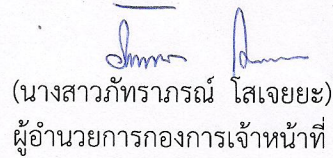 (นางสาวภัทราภรณ์ โสเจยยะ)
ผู้อำนวยการกองการเจ้าหน้าที่